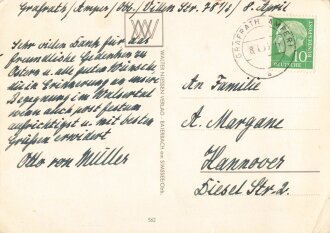 Grafrath/Amper/Obb, Villen Str. 78 1/2 8. April
Sehr vielen Dank für das
freundliche Gedenken zu
Ostern u. alle guten Wünsche,
die in Erinnerung an unsre
Begegnung im
wenn auch post festum
aufrichtigst u. mit besten
Grüßen erwidert
Otto von Müller
WALTER NIESSEN VERLAG BAUERBRACH
562
GRAFRATH (AMPER)
a
10
DEUTSCHE BUNDESPOST
An Familie
A. Margane
Hannover
Dieset Str. 2.